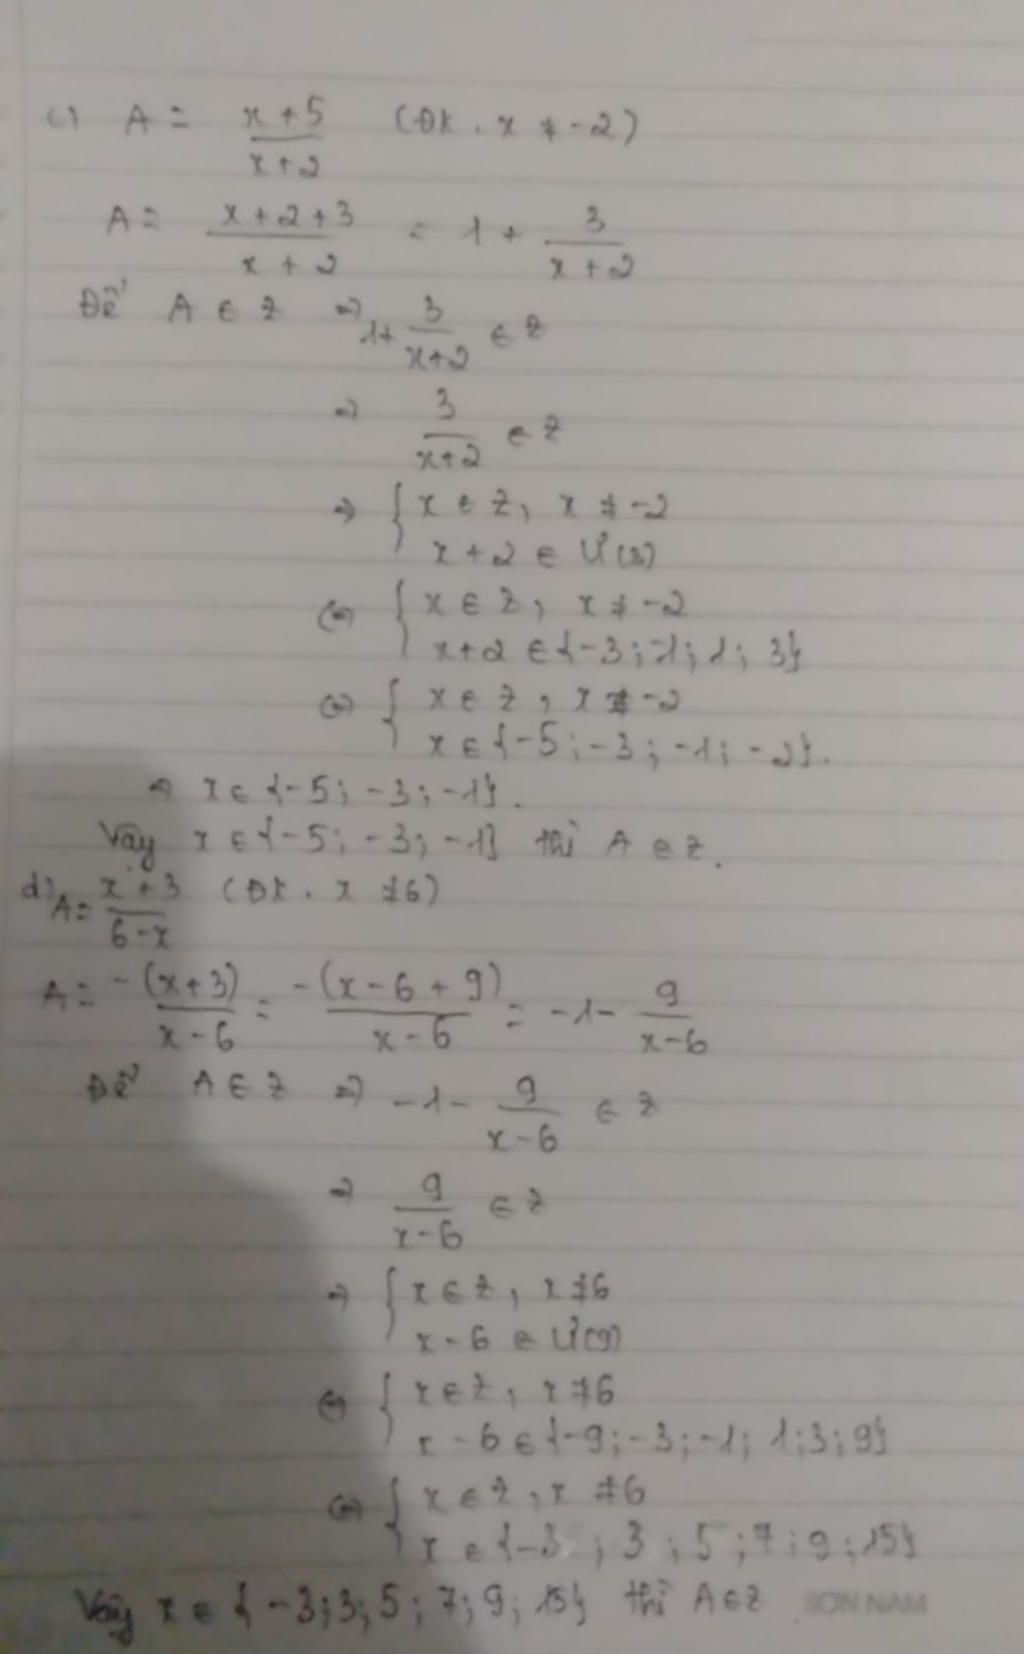 c) A = \frac{x+5}{x+2} (ĐK. x ≠ -2)
A = \frac{x+2+3}{x+2} = 1 + \frac{3}{x+2}
Để A ∈ Z ⇒ 1+ \frac{3}{x+2} ∈ Z
⇒ \frac{3}{x+2} ∈ Z
⇒ { x ∈ Z, x ≠ -2
x+2 ∈ Ư(3)
⇔ { x ∈ Z, x ≠ -2
x+2 ∈ {-3; -1; 1; 3}
⇔ { x ∈ Z, x ≠ -2
x ∈ {-5; -3; -1; -2}.
⇒ x ∈ {-5; -3; -1}.
Vậy x ∈ {-5; -3; -1} thì A ∈ Z.
d) A = \frac{x+3}{6-x} (ĐK. x ≠ 6)
A = \frac{-(x+3)}{x-6} = \frac{-(x-6+9)}{x-6} = -1- \frac{9}{x-6}
Để A ∈ Z ⇒ -1- \frac{9}{x-6} ∈ Z
⇒ \frac{9}{x-6} ∈ Z
⇒ { x ∈ Z, x ≠ 6
x-6 ∈ Ư(9)
⇔ { x ∈ Z, x ≠ 6
x-6 ∈ {-9; -3; -1; 1; 3; 9}
⇔ { x ∈ Z, x ≠ 6
x ∈ {-3; 3; 5; 7; 9; 15}
Vậy x ∈ {-3; 3; 5; 7; 9; 15} thì A ∈ Z SON NAM